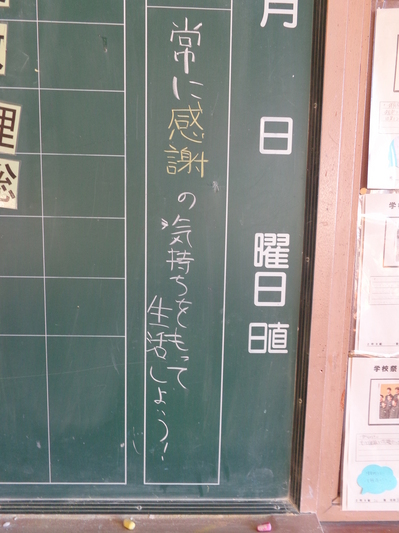 月 日 曜日
日直
常に感謝の気持ちをもって
生活しよう!
理
総
学校祭